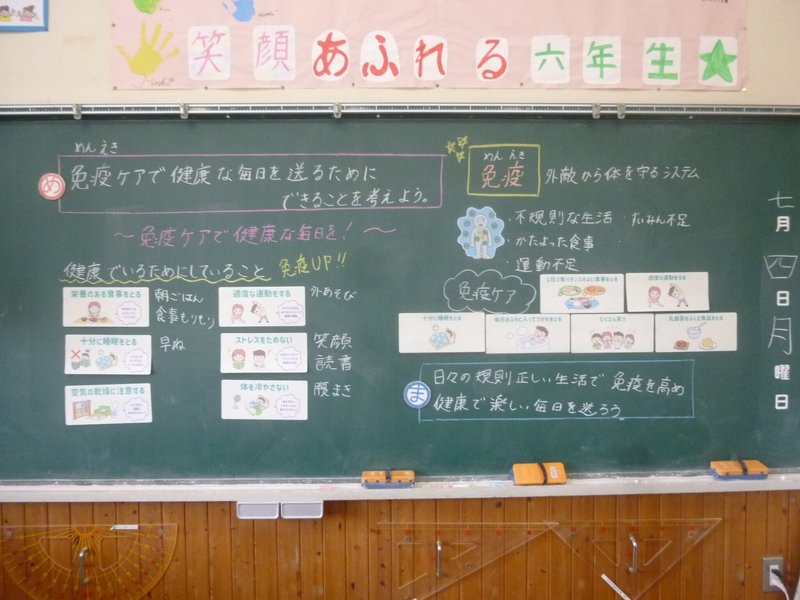 笑顔あふれる六年生
めんえき
め
免疫ケアで健康な毎日を送るために
できることを考えよう。
～免疫ケアで健康な毎日を！～
健康でいるためにしていること 免疫UP!!
栄養のある食事をとる
朝ごはん
食事もりもり
適度な運動をする
外あそび
十分に睡眠をとる
早ね
ストレスをためない
笑顔
読書
空気の乾燥に注意する
体を冷やさない
腹まき
めんえき
免疫
外敵から体を守るシステム
・不規則な生活 ・すいみん不足
・かたよった食事
・運動不足
免疫ケア
1日3食バランスのよい食事をとる
適度な運動をする
十分に睡眠をとる
毎日おふろに入ってつかれをとる
たくさん笑う
ま
日々の規則正しい生活で免疫を高め
健康で楽しい毎日を送ろう。
七月四日月曜日